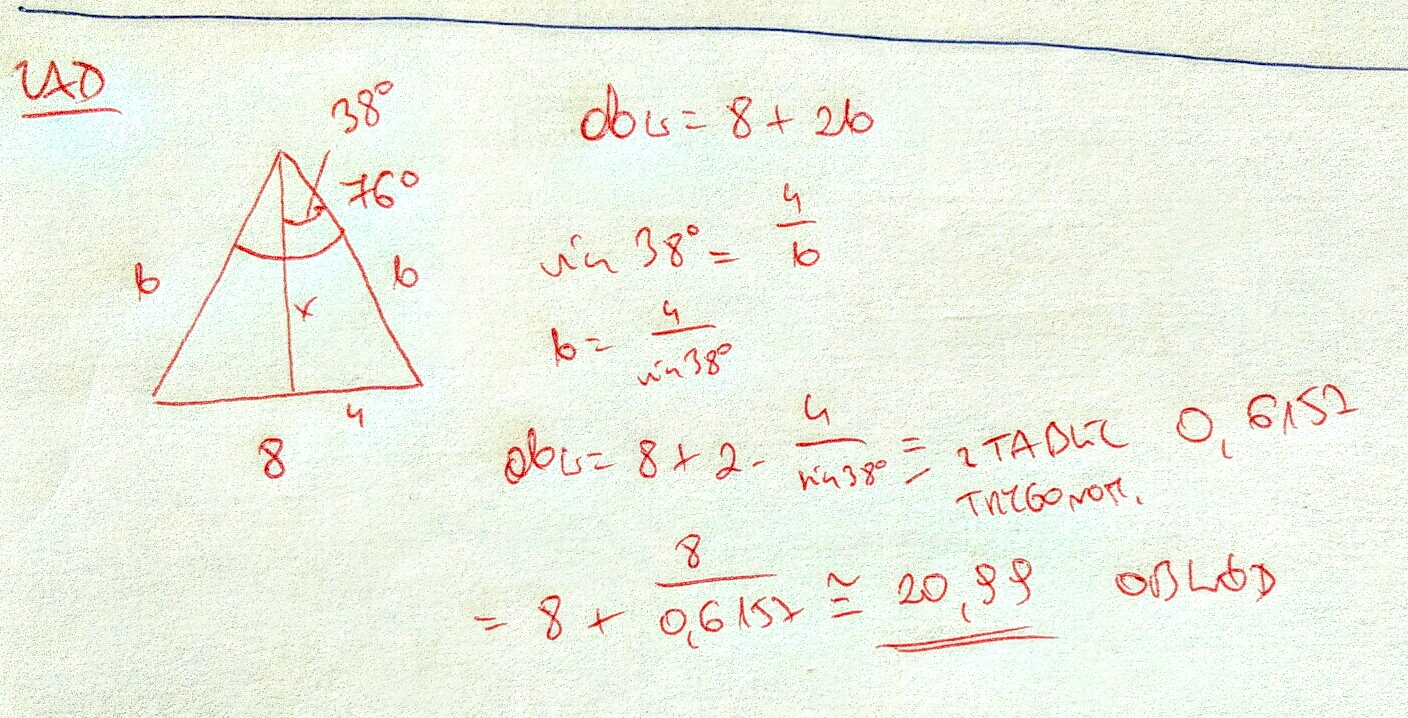 ZAD
38°
76°
b
b
x
4
8
obw = 8 + 2b
sin 38° = 4/b
b = 4/sin38°
obw = 8 + 2 · 4/sin38° = z TABLIC TRYGONOM. 0,6157
= 8 + 8/0,6157 ≅ 20,99 OBWÓD